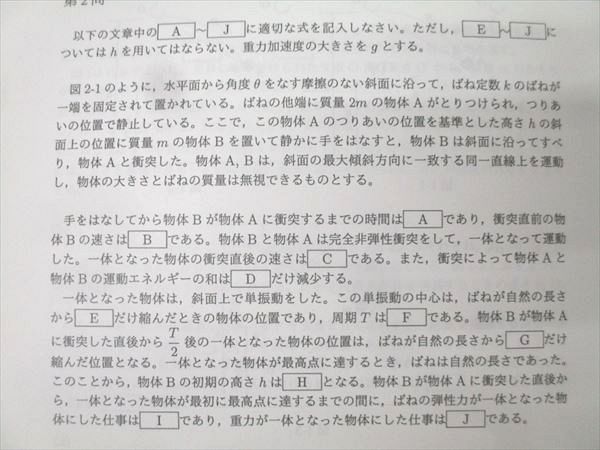 第2問
以下の文章中の A ～ J に適切な式を記入しなさい。ただし, E ～ J に
ついては h を用いてはならない。重力加速度の大きさを g とする。
図 2-1 のように, 水平面から角度 θ をなす摩擦のない斜面に沿って, ばね定数 k のばねが
一端を固定されて置かれている。ばねの他端に質量 2m の物体 A がとりつけられ, つりあ
いの位置で静止している。ここで, この物体 A のつりあいの位置を基準とした高さ h の斜
面上の位置に質量 m の物体 B を置いて静かに手をはなすと, 物体 B は斜面に沿ってすべ
り, 物体 A と衝突した。物体 A, B は, 斜面の最大傾斜方向に一致する同一直線上を運動
し, 物体の大きさとばねの質量は無視できるものとする。
手をはなしてから物体 B が物体 A に衝突するまでの時間は A であり, 衝突直前の物
体 B の速さは B である。物体 B と物体 A は完全非弾性衝突をして, 一体となって運動
した。一体となった物体の衝突直後の速さは C である。また, 衝突によって物体 A と
物体 B の運動エネルギーの和は D だけ減少する。
一体となった物体は, 斜面上で単振動をした。この単振動の中心は, ばねが自然の長さ
から E だけ縮んだときの物体の位置であり, 周期 T は F である。物体 B が物体 A
に衝突した直後から T/2 後の一体となった物体の位置は, ばねが自然の長さから G だけ
縮んだ位置となる。一体となった物体が最高点に達するとき, ばねは自然の長さであった。
このことから, 物体 B の初期の高さ h は H となる。物体 B が物体 A に衝突した直後か
ら, 一体となった物体が最初に最高点に達するまでの間に, ばねの弾性力が一体となった物
体にした仕事は I であり, 重力が一体となった物体にした仕事は J である。